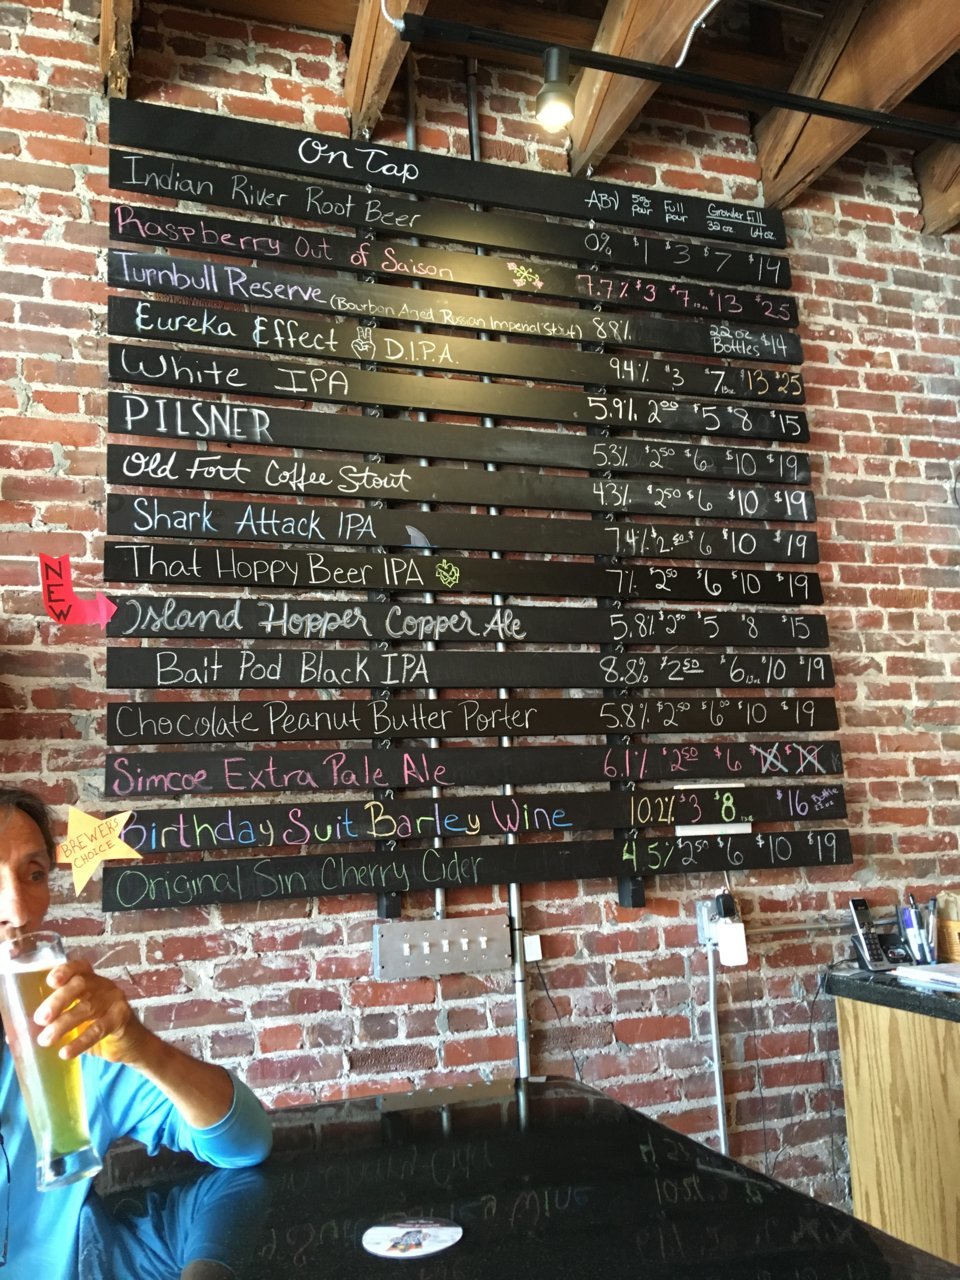 On Tap
ABV 5oz pour Full pour Growler Fill 32oz 64oz
Indian River Root Beer 0% $1 $3 $7 $14
Raspberry Out of Saison 7.7% $3 $7 $13 $25
Turnbull Reserve (Bourbon Aged Russian Imperial Stout) 88% 22oz Bottles $14
Eureka Effect D.I.P.A. 9.4% $3 $7 $13 $25
White IPA 5.9% 2.00 $5 $8 $15
PILSNER 5.3% $2.50 $6 $10 $19
Old Fort Coffee Stout 4.3% $2.50 $6 $10 $19
Shark Attack IPA 7.4% $2.50 $6 $10 $19
That Hoppy Beer IPA 7% $2.50 $6 $10 $19
NEW
Island Hopper Copper Ale 5.8% $2.50 $5 $8 $15
Bait Pod Black IPA 8.8% $2.50 $6 $10 $19
Chocolate Peanut Butter Porter 5.8% $2.50 $6.00 $10 $19
Simcoe Extra Pale Ale 6.1% $2.50 $6
BREWERS CHOICE
Birthday Suit Barley Wine 10.2% $3 $8 $16
Original Sin Cherry Cider 4.5% $2.50 $6 $10 $19